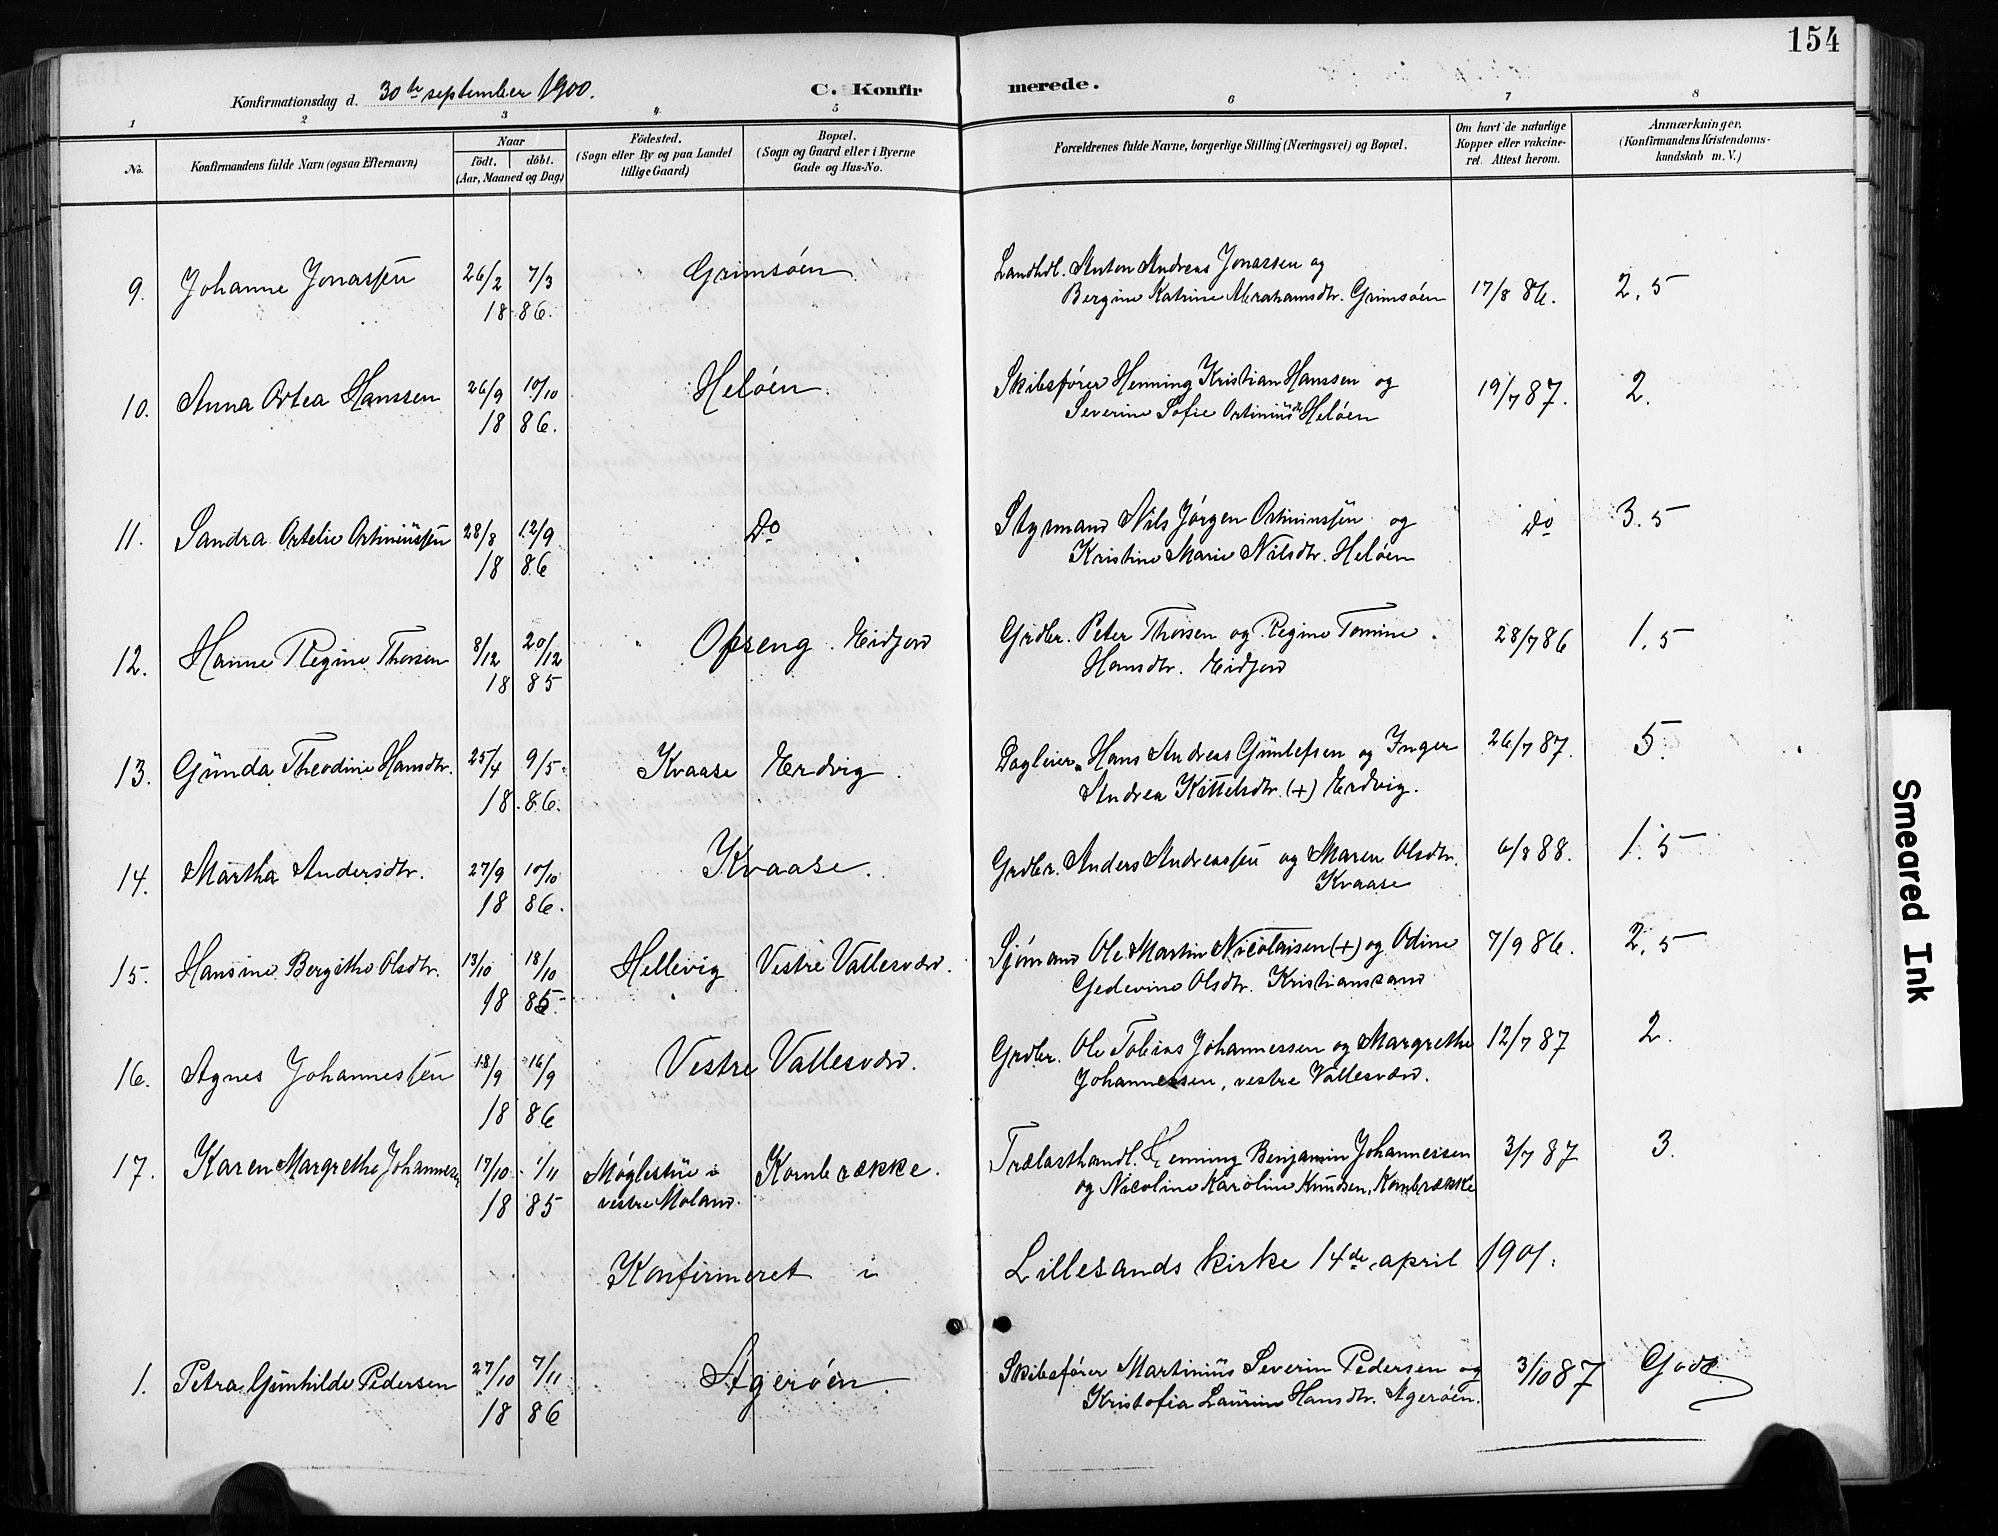 154
Konfirmationsdag d. 30te september 1900. C. Konfirmerede.
1 2 3 4 5 6 7 8
No. Konfirmandens fulde Navn (ogsaa Efternavn) Naar født. døbt. (Aar, Maaned og Dag) Fødested. (Sogn eller By og paa Landet tillige Gaard) Bopæl. (Sogn og Gaard eller i Byerne Gade og Hus-No. Forældrenes fulde Navne, borgerlige Stilling (Næringsvei) og Bopæl. Om havt de naturlige Kopper eller vakcineret. Attest herom. Anmærkninger, (Konfirmandens Kristendomskundskab m. V.)
9. Johanne Jonassen 26/2 7/3 Grimsøen Landhdl. Anton Andreas Jonassen og
18 86. Bergine Katrine Abrahamsdtr. Grimsøen 17/8 86. 2,5
10. Anna Ortea Hanssen 26/9 10/10 Heløen. Skibsfører Henning Kristian Hanssen og 19/7 87. 2.
18 86. Severine Sofie Ortiniusdtr Heløen
11. Sandra Ortelie Ortiniussen 28/8 12/9 Do Styrmand Nils Jørgen Ortiniussen og Do 3.5
18 86 Kristine Marie Nilsdtr. Heløen
12. Hanne Regine Thorsen 8/12 20/12 Opseng. Eidjord Grdbr. Peter Thorsen og Regine Tomine 28/7 86 1.5
18 85 Hansdtr. Eidjord
13. Gunda Theodine Hansdtr. 25/4 9/5 Kvaase Erdvig Dagleier Hans Andreas Gunlefsen og Inger 26/7 87. 5.
18 86. Andrea Kittelsdtr. (+) Erdvig.
14. Martha Andersdtr. 27/9 10/10 Kvaase. Grdbr. Anders Andreassen og Maren Olsdtr. 6/8 88. 1.5
18 86. Kvaase
15. Hansine Bergithe Olsdtr. 13/10 18/10 Hellevig Vestre Vallesværd. Sjømand Ole Martin Nicolaisen (+) og Odine 7/9 86. 2,5
18 85. Gedevine Olsdtr. Kristianssand
16. Agnes Johannessen 18/9 16/9 Vestre Vallesværd. Grdbr. Ole Tobias Johannessen og Margrethe 12/7 87 2.
18 86 Johannessen, vestre Vallesværd.
17. Karen Margrethe Johannessen 17/10 1/11 Møglestue i Kornbrække. Trælasthandl. Henning Benjamin Johannessen 3/7 87 3.
18 85 vestre Moland. og Nicoline Karoline Knudsen, Kornbrække
Konfirmeret i Lillesands kirke 14de april 1901.
1. Petra Gunhilde Pedersen 27/10 7/11 Agerøen. Skibsfører Martinius Severin Pedersen og 3/10 87 Godt
18 86 Kristofia Laurine Hansdtr. Agerøen.
Smeared Ink